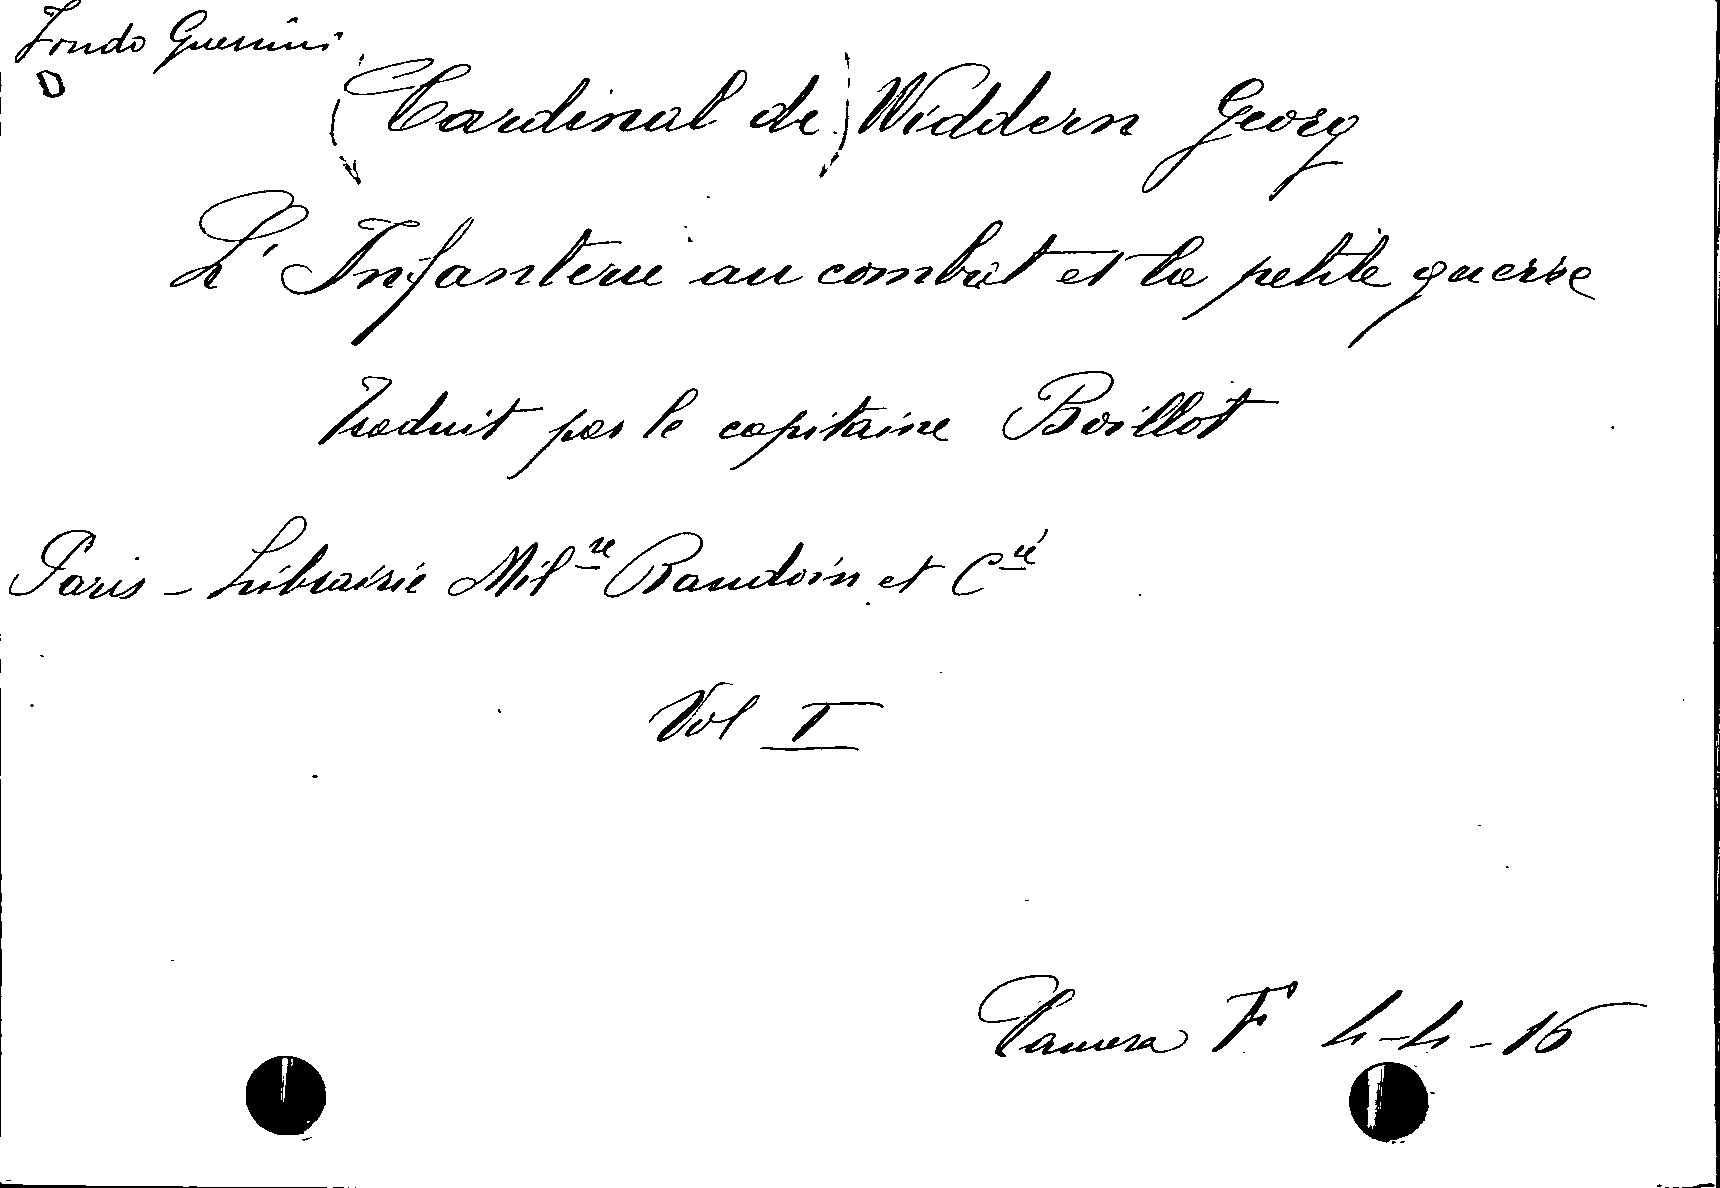 Fondo Guerrini
D
Cardinal de Widdern Georg
L'Infanterie au combat et la petite guerre
Traduit par le capitaine Boillot
Paris - Librairie Mil re Baudoin et C ie
Vol I
Camera F 4-4-16